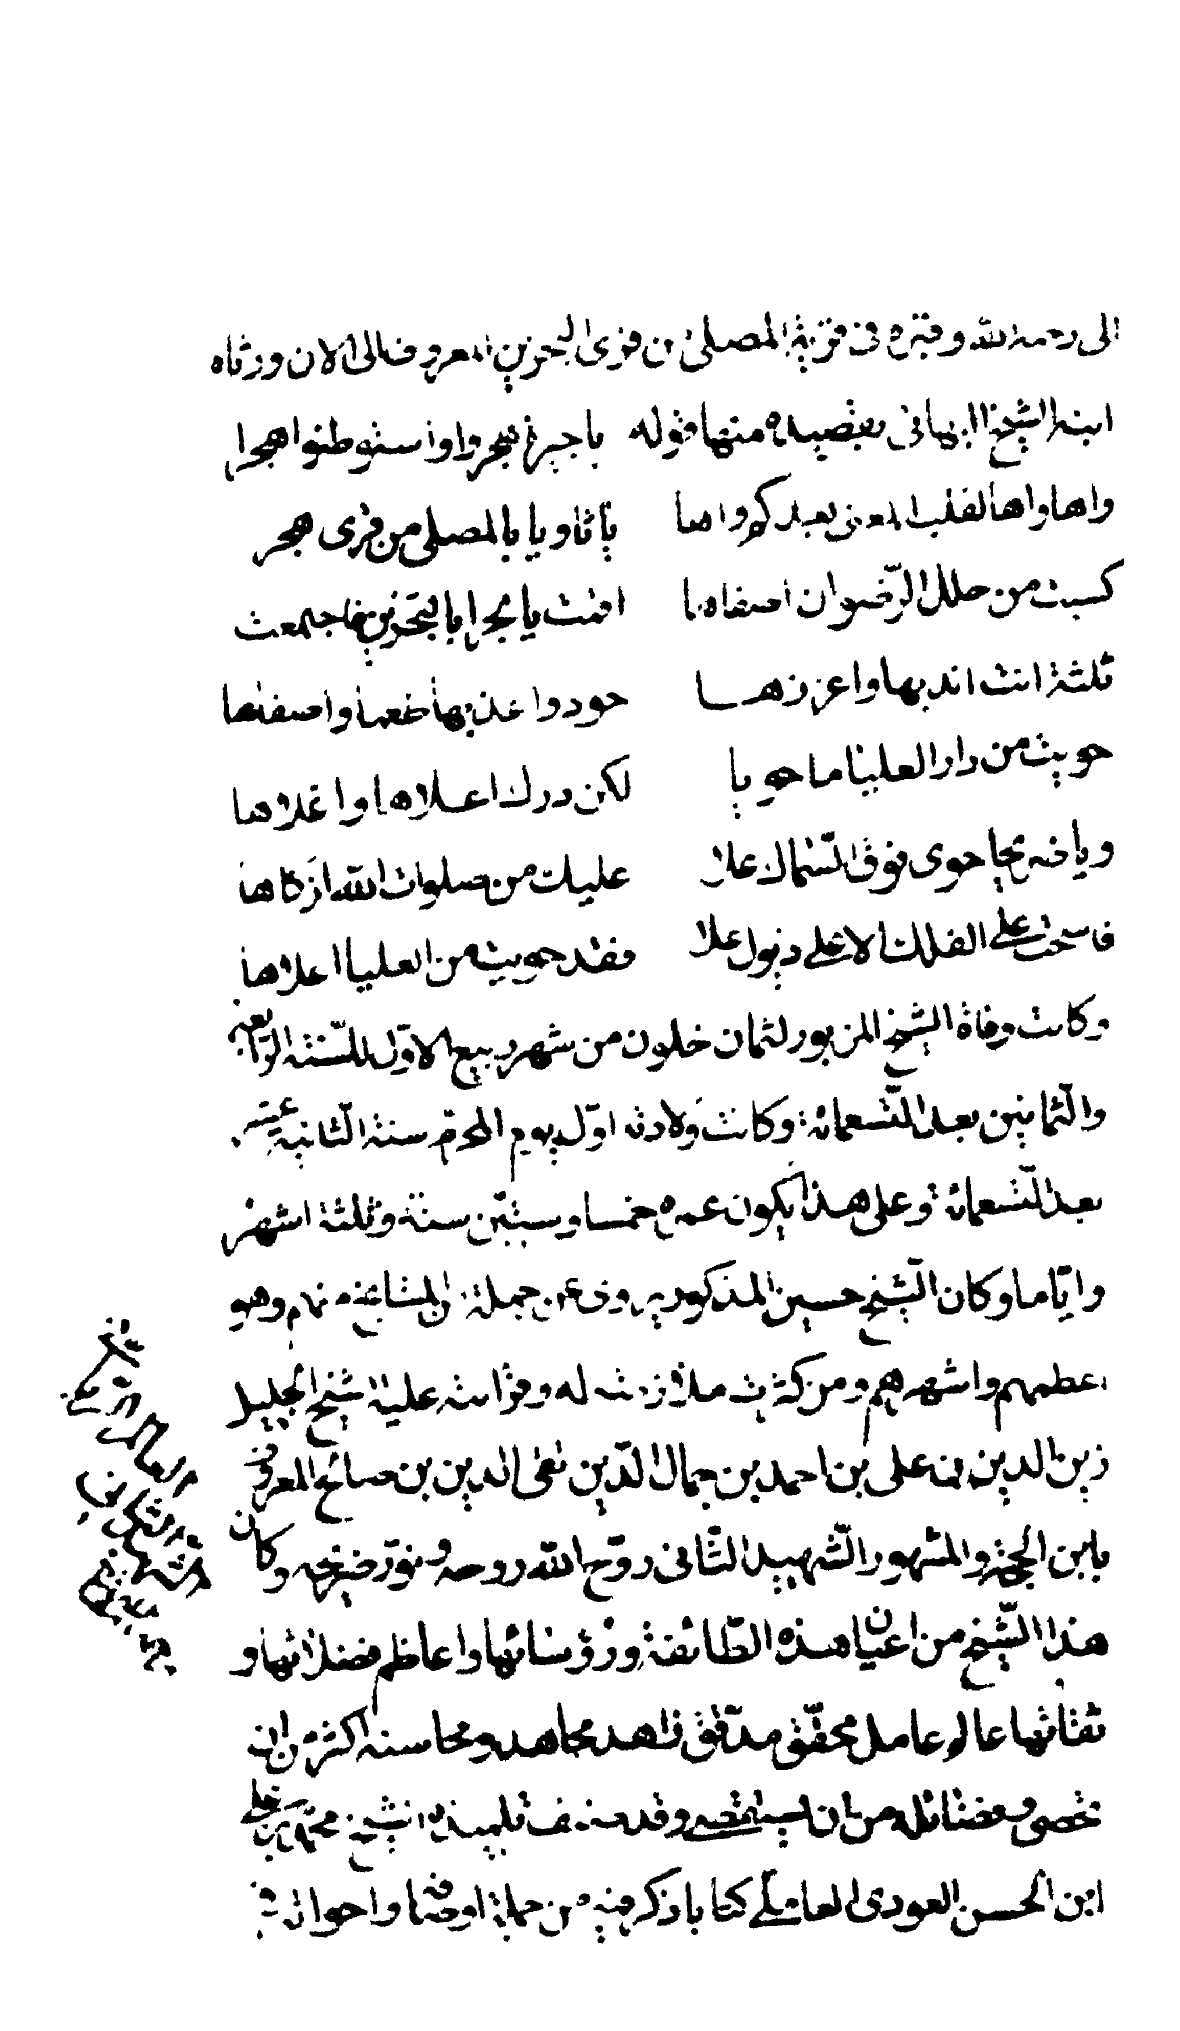 الى رحمة الله وقبره فى قرية المصلى من قرى البحرين المعروف الى الان ورثاه
ابنه الشيخ البهائى بقصيدة منها قوله يا جيرة هجروا واستوطنوا هجرا
واها واها لقلب المعنى بعدكم واها يا ثاويا بالمصلى من قرى هجر
كسيت من حلل الرضوان اصفاها اقمت يا بحرا بالبحرين فاجتمعت
ثلثة انت انديها واعززها جودا واعذبها طعما واصفاها
حويت من درر العلياء ما حويا لكن درك اعلاها واغلاها
ويا ضريحا حوى فوق السماك علا عليك من صلوات الله ازكاها
فاسحب على الفلك الاعلى ذيول علا فقد حويت من العلياء اعلاها
وكانت وفاة الشيخ المزبور لثمان خلون من شهر ربيع الاول للسنة الرابعة
والثمانين بعد التسعمائة وكانت ولادته اول يوم المحرم سنة الثانية عشر
بعد التسعمائة وعلى هذا يكون عمره خمسا وستين سنة وثلثة اشهر
واياما وكان الشيخ حسين المذكور يروى عن جملة من المشايخ منهم وهو
اعظمهم واشهرهم ومن كثرت ملازمته له وقرائته عليه الشيخ الجليل
زين الدين بن على بن احمد بن جمال الدين تقى الدين بن صالح المعروف
بابن الحجة والمشهور بالشهيد الثانى روح الله روحه ونور ضريحه وكان
هذا الشيخ من اعيان هذه الطائفة ورؤسائها واعاظم فضلائها و
ثقاتها عالم عامل محقق مدقق زاهد مجاهد ومحاسنه اكثر من ان
تحصى وفضائله من ان تستقصى وقد صنف تلميذه الشيخ محمد بن على
ابن الحسن العودى العاملى كتابا ذكر فيه من جملة اوصافه واحواله